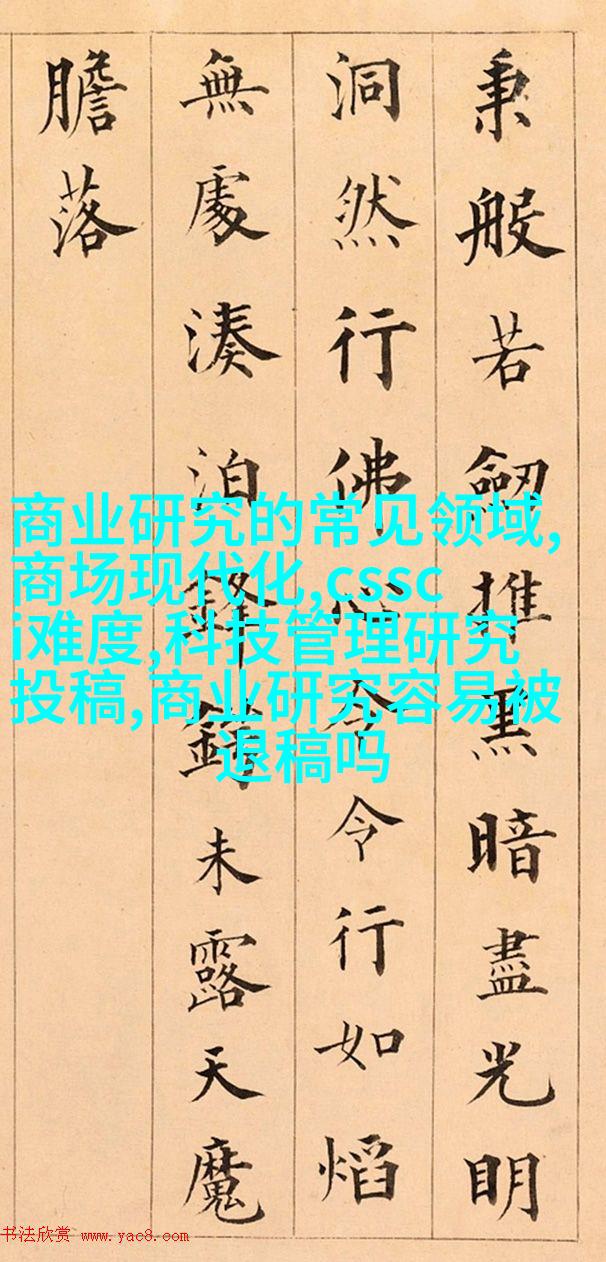 秉般若劔推黑暗盡光明
洞然行佛心令令行如熖
無處湊泊鋒鋩未露天魔
膽落
商业研究的常见领域,
商场现代化,cssc
i难度,科技管理研究
投稿,商业研究容易被
退稿吗
书法欣赏 www.yac8.com